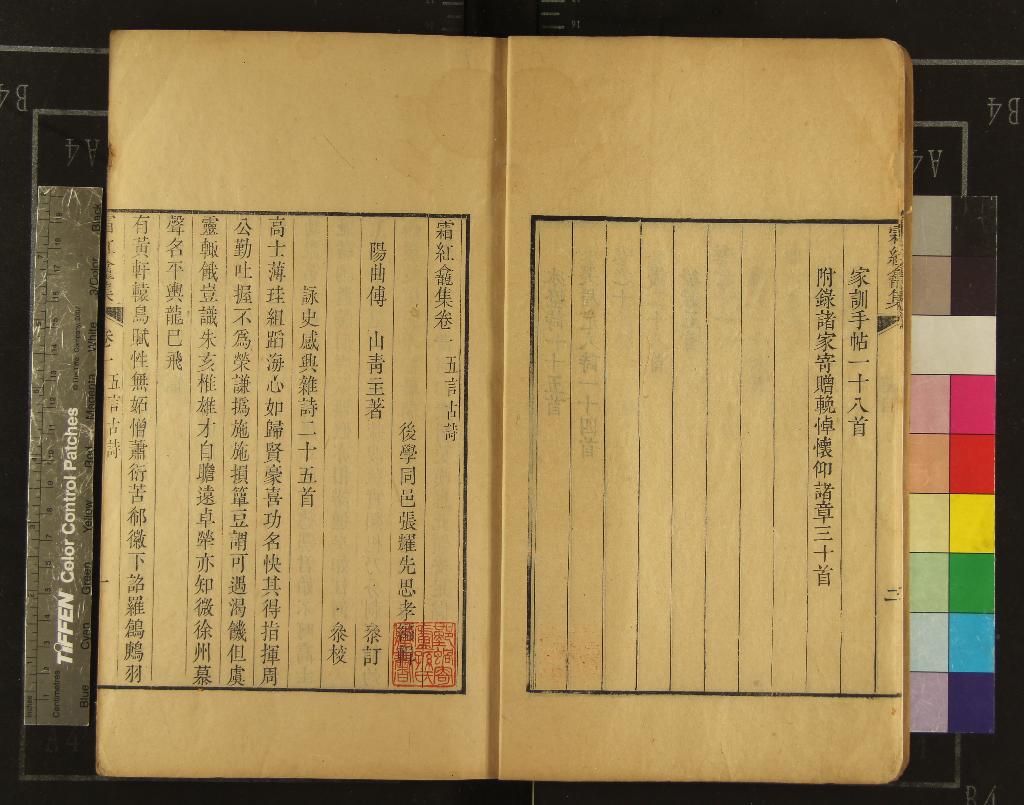 霜紅龕集
家訓手帖一十八首
附錄諸家寄贈輓悼懷仰諸章三十首
二
霜紅龕集卷一 五言古詩
後學同邑張耀先思孝編輯
陽曲傅 山青主著
叅訂
叅校
詠史感興雜詩二十五首
高士薄珪組蹈海心如歸賢豪喜功名快其得指揮周
公勤吐握不爲榮謙撝施施損簞豆謂可遇渴饑但虞
靈輒餓豈識朱亥椎雄才自瞻遠卓犖亦知微徐州慕
聲名平輿龍已飛
有黃軒轅鳥賦性無妬憎蕭衍苦郗徽下詔羅鶬鷓羽
霜紅龕集
卷一
五言古詩
一
TIFFEN Color Control Patches
Blue
Cyan
Green
Yellow
Red
Magenta
White
3/Color
Black
Inches
Centimetres
B4
A4
A4
B4
B4